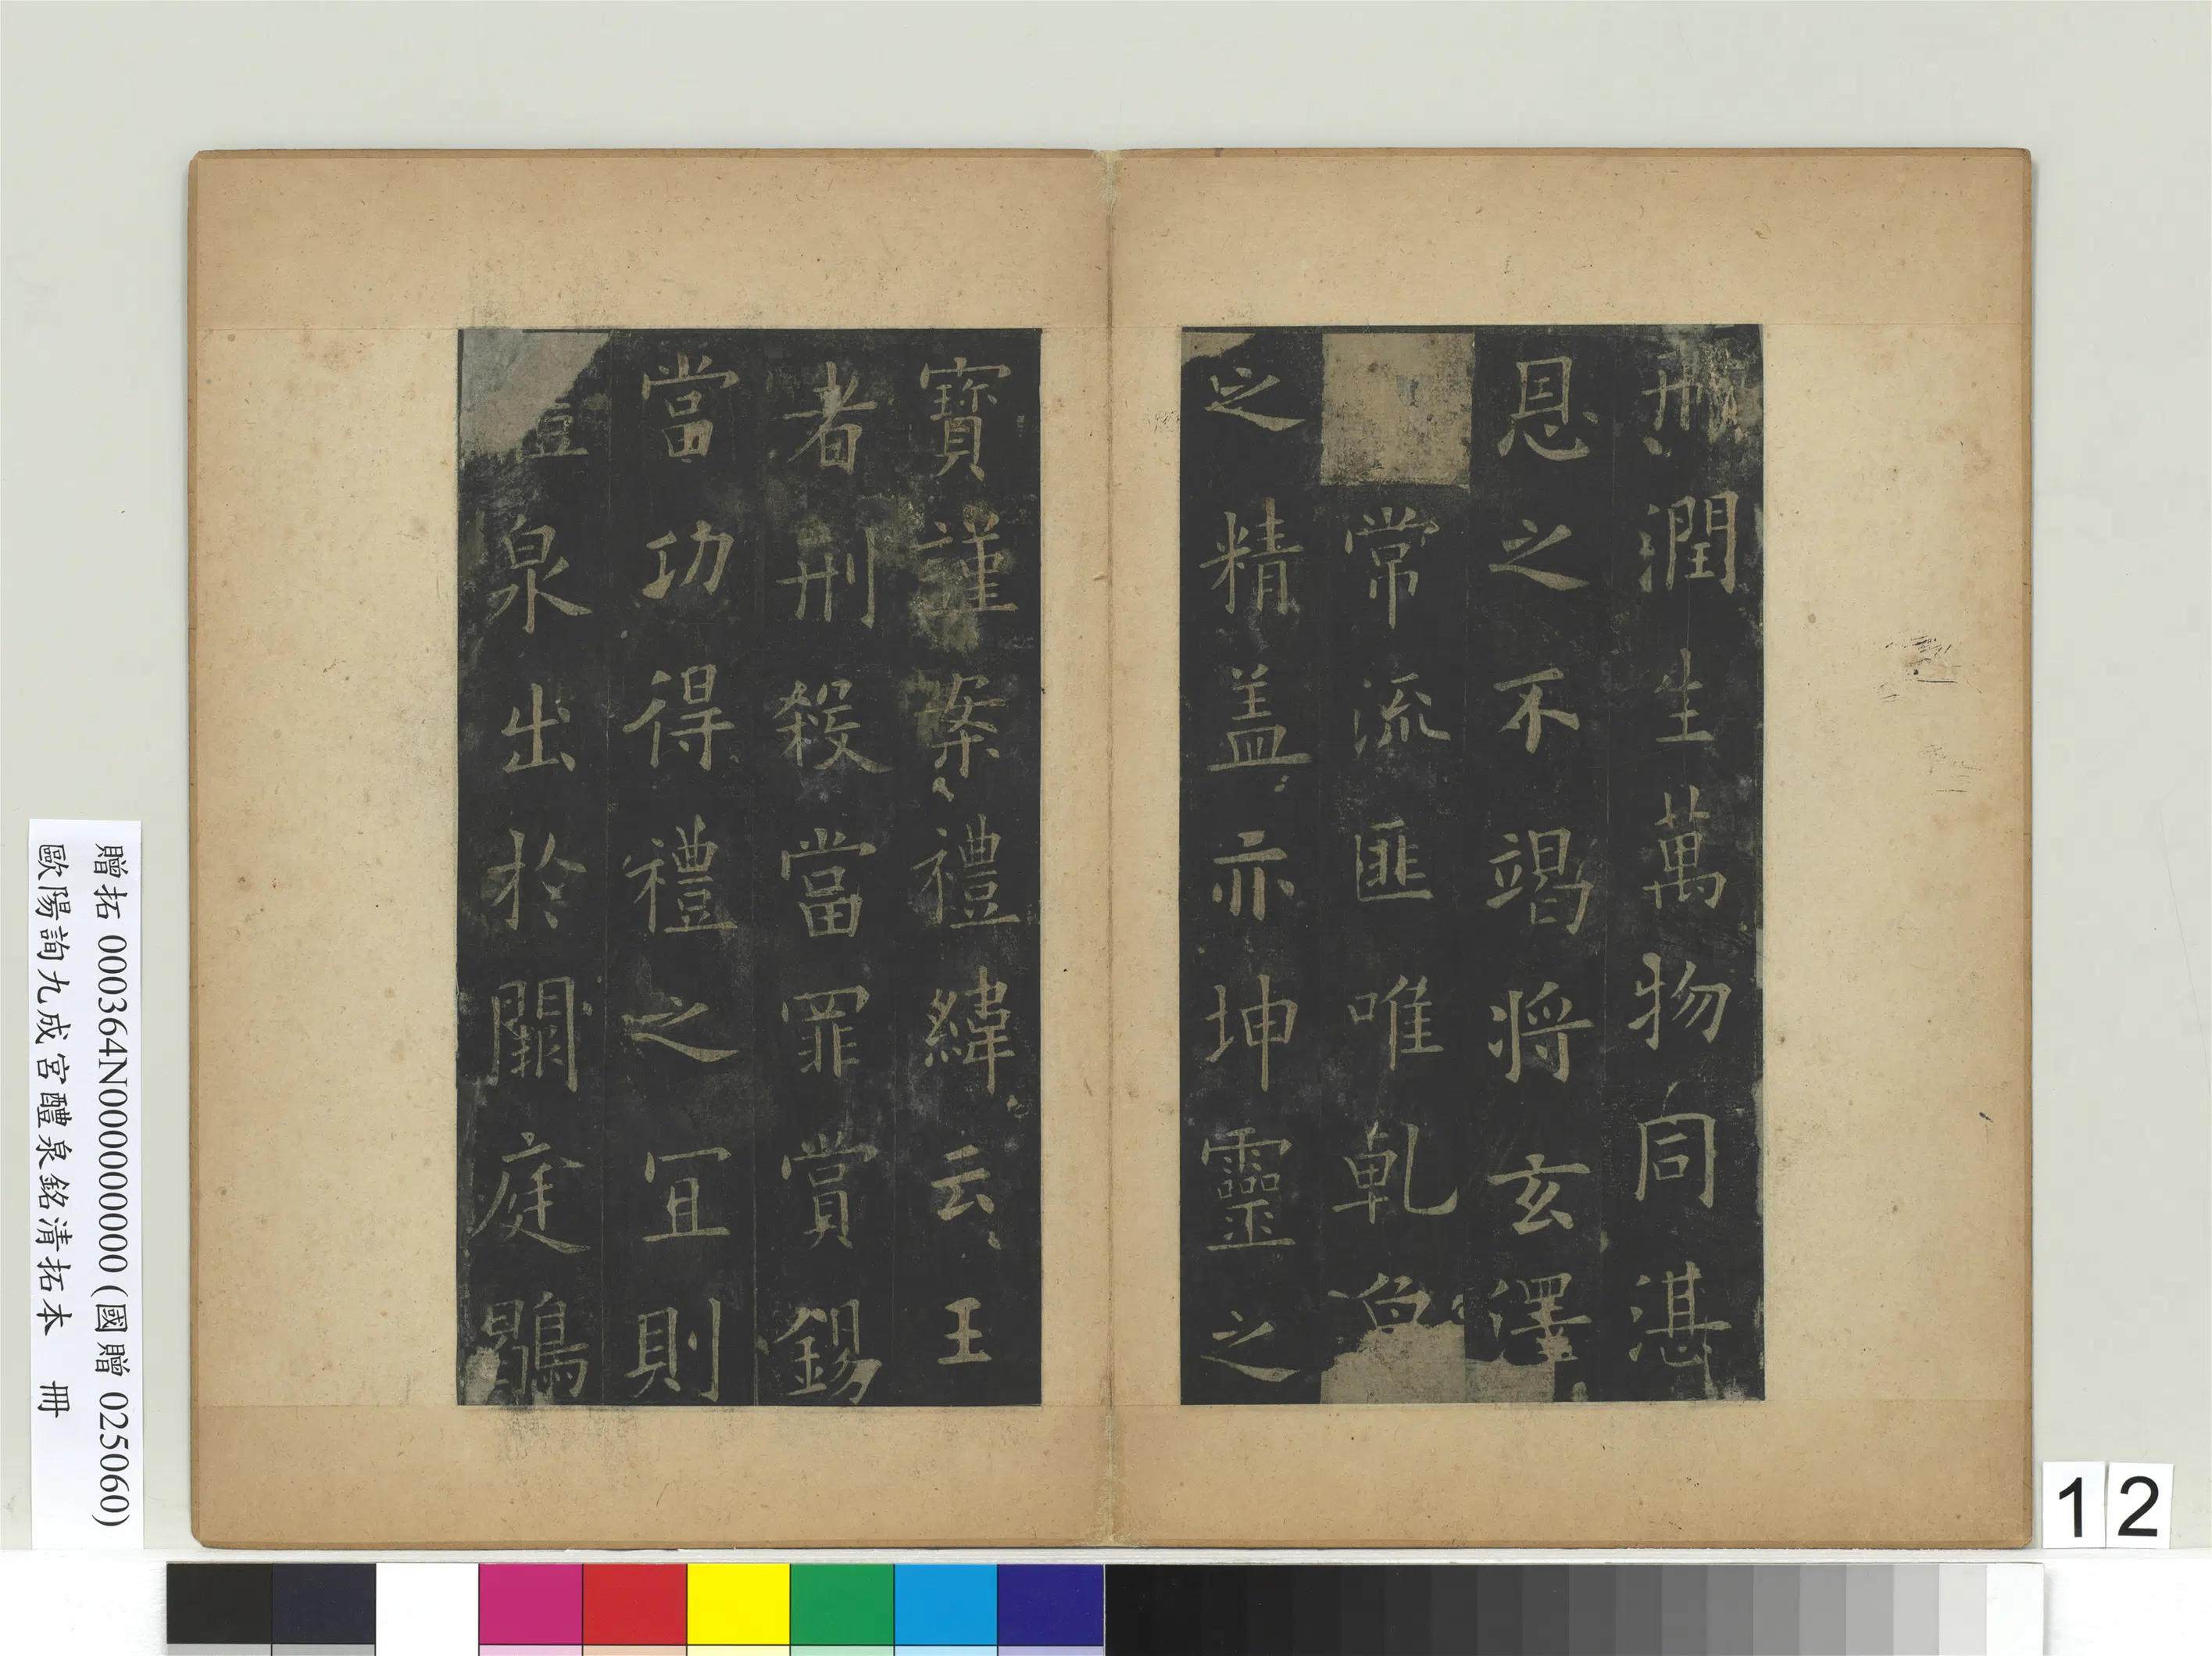 潤生萬物同湛
恩之不竭將玄澤
常流匪唯乹象
之精盖亦坤靈之
寶謹案禮緯云王
者刑殺當罪賞錫
當功得禮之冝則
醴泉出於闕庭鶡
贈拓 000364N000000000 (國贈 025060)
歐陽詢九成宮醴泉銘清拓本 冊
12